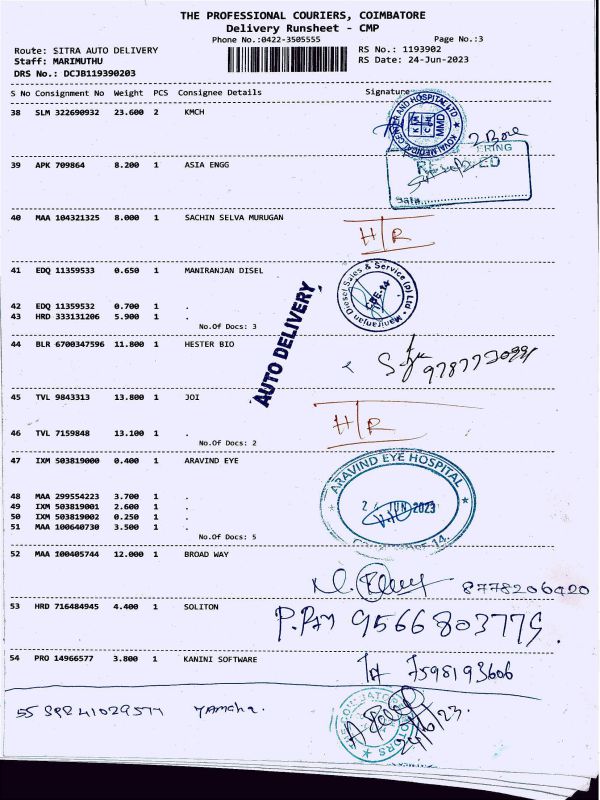 THE PROFESSIONAL COURIERS, COIMBATORE
Delivery Runsheet - CMP
Phone No.:0422-3505555 Page No.:3
Route: SITRA AUTO DELIVERY RS No.: 1193902
Staff: MARIMUTHU RS Date: 24-Jun-2023
DRS No.: DCJB119390203
S No Consignment No Weight PCS Consignee Details Signature
38 SLM 322690932 23.600 2 KMCH
KOVAI MEDICAL CENTER AND HOSPITAL LTD
MMD
2 Box
39 APK 709864 8.200 1 ASIA ENGG
Date
40 MAA 104321325 8.000 1 SACHIN SELVA MURUGAN
H/R
41 EDQ 11359533 0.650 1 MANIRANJAN DISEL
Maniranjan Diesel Sales & Service (P) Ltd
CBE-14
42 EDQ 11359532 0.700 1 .
43 HRD 333131206 5.900 1 .
No.Of Docs: 3
AUTO DELIVERY
44 BLR 6700347596 11.800 1 HESTER BIO
45 TVL 9843313 13.800 1 JOI
H/R
46 TVL 7159848 13.100 1 .
No.Of Docs: 2
47 IXM 503819000 0.400 1 ARAVIND EYE
ARAVIND EYE HOSPITAL
JUN 2023
48 MAA 299554223 3.700 1 .
49 IXM 503819001 2.600 1 .
50 IXM 503819002 0.250 1 .
51 MAA 100640730 3.500 1 .
No.Of Docs: 5
52 MAA 100405744 12.000 1 BROAD WAY
8778206420
53 HRD 716484945 4.400 1 SOLITON
9566803779
54 PRO 14966577 3.800 1 KANINI SOFTWARE
7598193606
55 SPR 41029577 Yamaha.